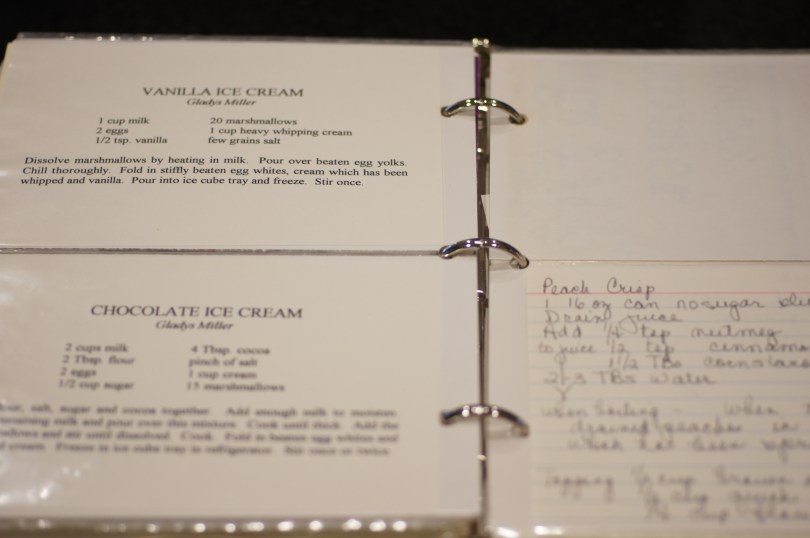 VANILLA ICE CREAM
Gladys Miller
1 cup milk 20 marshmallows
2 eggs 1 cup heavy whipping cream
1/2 tsp. vanilla few grains salt
Dissolve marshmallows by heating in milk. Pour over beaten egg yolks.
Chill thoroughly. Fold in stiffly beaten egg whites, cream which has been
whipped and vanilla. Pour into ice cube tray and freeze. Stir once.
CHOCOLATE ICE CREAM
Gladys Miller
2 cups milk 4 Tbsp. cocoa
2 Tbsp. flour pinch of salt
2 eggs 1 cup cream
1/2 cup sugar 15 marshmallows
salt, sugar and cocoa together. Add enough milk to moisten.
milk and pour over this mixture. Cook until thick. Add the
and stir until dissolved. Cook. Fold in beaten egg whites and
cream. Freeze in ice cube tray in refrigerator. Stir once or twice.
Peach Crisp
1 16 oz can no sugar
Drain juice
Add 1/4 tsp nutmeg
to juice 1/2 tsp
1 1/2 TBs
2-3 TBs Water
When boiling - When
drained peaches in
Topping